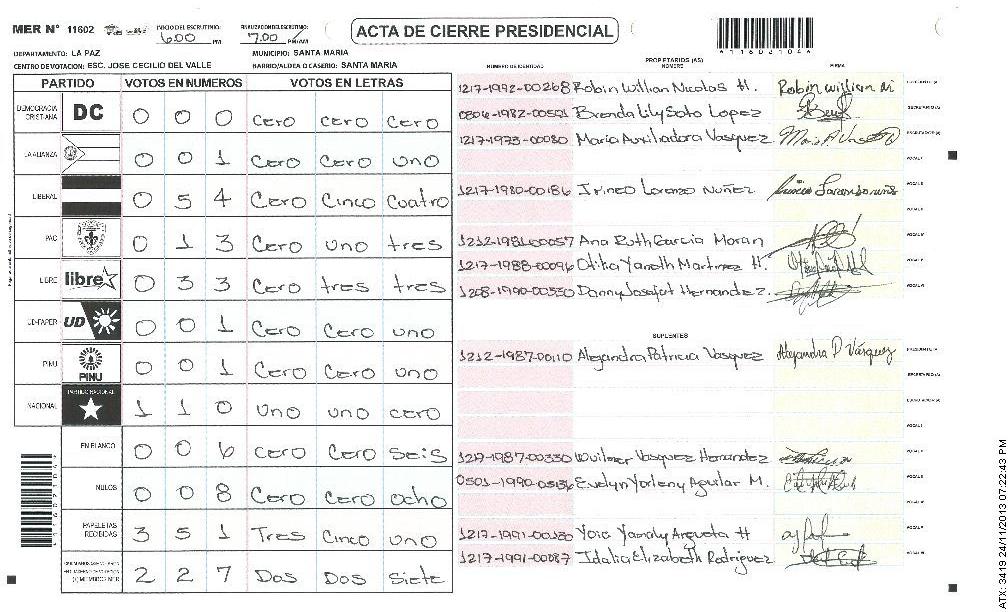 MER Nº 11602 INICIO DEL ESCRUTINIO: 6:00 PM FINALIZACION DEL ESCRUTINIO: 7:00 PM/AM ACTA DE CIERRE PRESIDENCIAL
DEPARTAMENTO: LA PAZ MUNICIPIO: SANTA MARIA
CENTRO DE VOTACION: ESC. JOSE CECILIO DEL VALLE BARRIO/ALDEA O CASERIO: SANTA MARIA
PARTIDO VOTOS EN NUMEROS VOTOS EN LETRAS
DEMOCRACIA CRISTIANA DC 0 0 0 Cero cero cero
LA ALIANZA 0 0 1 Cero Cero uno
LIBERAL 0 5 4 Cero Cinco Cuatro
PAC 0 1 3 Cero uno tres
LIBRE libre 0 3 3 Cero tres tres
UD-FAPER UD 0 0 1 Cero Cero uno
PINU PINU 0 0 1 Cero Cero uno
NACIONAL PARTIDO NACIONAL 1 1 0 uno uno cero
EN BLANCO 0 0 6 cero Cero seis
NULOS 0 0 8 Cero Cero ocho
PAPELETAS RECIBIDAS 3 5 1 Tres Cinco uno
2 2 7 Dos Dos siete
NUMERO DE IDENTIDAD PROPIETARIOS (AS) NOMBRE FIRMA
1217-1992-00268 Robin Willian Nicolas H. Robin willian
0806-1982-00501 Brenda Lily Soto Lopez SECRETARIO(A)
1217-1973-00080 Maria Auxiliadora Vasquez ESCRUTADOR(A)
VOCAL I
1217-1980-00186 Irineo Lorenzo Nuñez VOCAL II
1212-1981-00057 Ana Ruth Garcia Moran
1217-1988-00096 Otilia Yaneth Martinez H.
1208-1990-00330 Danny Josafat Hernandez
SUPLENTES
1212-1987-00110 Alejandra Patricia Vasquez Alejandra P Vásquez PRESIDENTE/A
SECRETARIO(A)
ESCRUTADOR(A)
VOCAL I
1217-1987-00330 Wuilmer Vasquez Hernandez
Evelyn Yorleny Aguilar M.
1217-1991-00087 Idalia Elizabeth Rodriguez
ATX: 3419 24/11/2013 07:22:43 PM